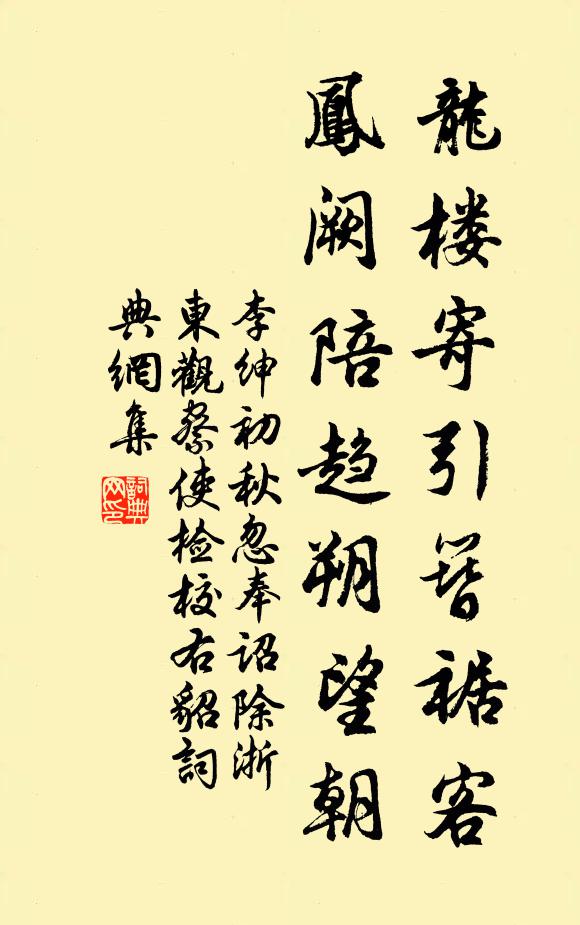 龍楼寄引簪裾客
鳳阙陪趋朔望朝
李紳初秋忽奉诏除浙
東觀察使检校右貂詞
典網集
詞典
网印